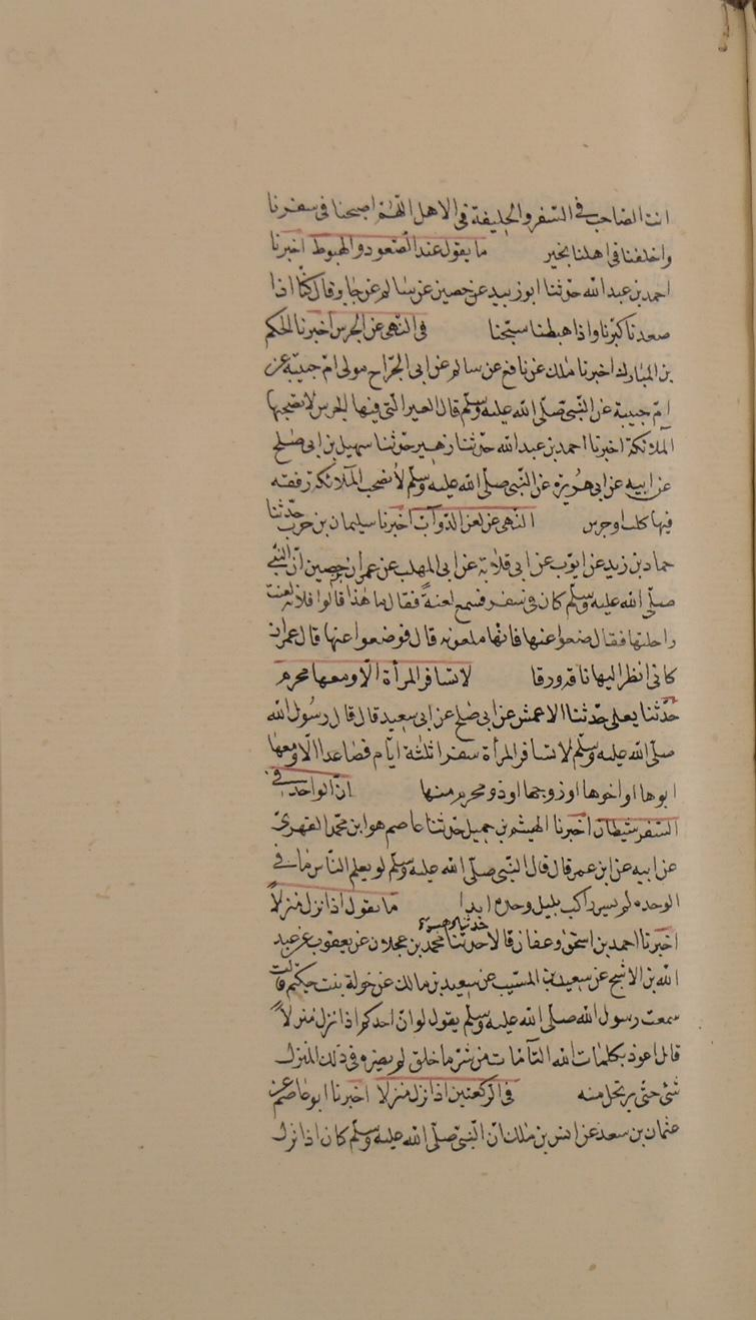 انت الصاحب فى السّفر والخليفة فى الاهل اللّهمّ اصحبنا فى سفرنا
واخلفنا فى اهلنا بخير ما يقول عند الصّعود والهبوط اخبرنا
احمد بن عبد الله حدّثنا ابو زبيد عن حصين عن سالم عن جابر قال كنّا اذا
صعدنا كبّرنا واذا هبطنا سبّحنا فى النّهى عن الجرس اخبرنا الحكم
بن المبارك اخبرنا ملك عن نافع عن سالم عن ابى الجرّاح مولى امّ حبيبة عن
امّ حبيبة عن النّبىّ صلّى الله عليه وسلّم قال العير الّتى فيها الجرس لا تصحبها
الملائكة اخبرنا احمد بن عبد الله حدّثنا زهير حدّثنا سهيل بن ابى صلح
عن ابيه عن ابى هريرة عن النّبى صلّى الله عليه وسلّم لا تصحب الملائكة رفقة
فيها كلب او جرس النّهى عن لعن الدّوابّ اخبرنا سليمان بن حرب حدّثنا
حماد بن زيد عن ايّوب عن ابى قلابة عن ابى المهلب عن عمران بن حصين انّ النّبىّ
صلّى الله عليه وسلّم كان فى سفر فسمع لعنةً فقال ما هذا قالوا فلانه لعنت
راحلتها فقال ضعوا عنها فانها ملعونه قال فوضعوا عنها قال عمران
كانى انظر اليها ناقة ورقا لا تسافر المرأة الّا ومعها محرم
حدّثنا يعلى حدّثنا الاعمش عن ابى صلح عن ابى سعيد قال قال رسول الله
صلّى الله عليه وسلّم لا تسافر المرأة سفرا ثلثة ايّام فصاعدا الّا ومعها
ابوها او اخوها او زوجها او ذو محرم منها انّ الواحد فى
السّفر شيطان اخبرنا الهيثم بن جميل حدّثنا عاصم هو ابن محمّد العمرىّ
عن ابيه عن ابن عمر قال قال النّبى صلّى الله عليه وسلّم لو يعلم النّاس ما فى
الوحده لم يسر راكب بليل وحده ابدا ما يقول اذا نزل منزلاً
اخبرنا احمد بن اسحق وعفان قالا حدّثنا محمّد بن عجلان عن يعقوب عن عبد
الله بن الاشجّ عن سعيد بن المسيّب عن سعيد بن مالك عن خولة بنت حكيم قالت
سمعت رسول الله صلّى الله عليه وسلّم يقول لو انّ احدكم اذا نزل منزلاً
قال اعوذ بكلمات الله التّامّات من شرّ ما خلق لم يضره فى ذلك المنزل
شئ حتّى يرتحل منه فى الرّكعتين اذا نزل منزلا اخبرنا ابو عاصم عن
عثمان بن سعد عن انس بن ملك انّ النّبىّ صلّى الله عليه وسلّم كان اذا نزل